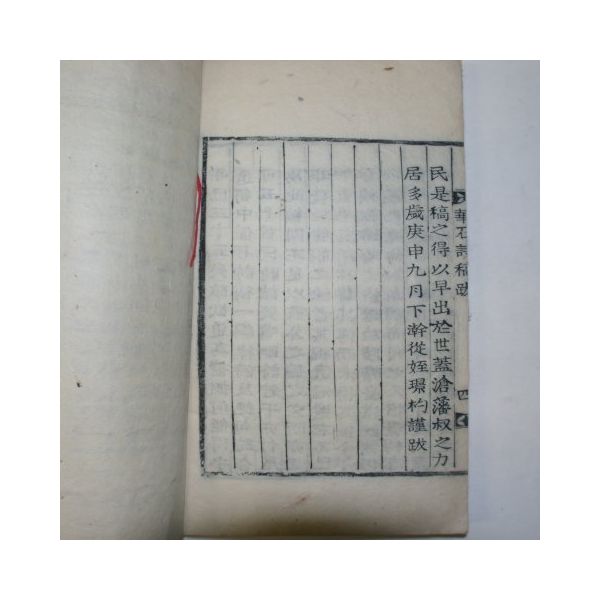 華石詩稿跋 四
民是稿之得以早出於世蓋滄藩叔之力
居多歲庚申九月下澣從姪璟杓謹跋